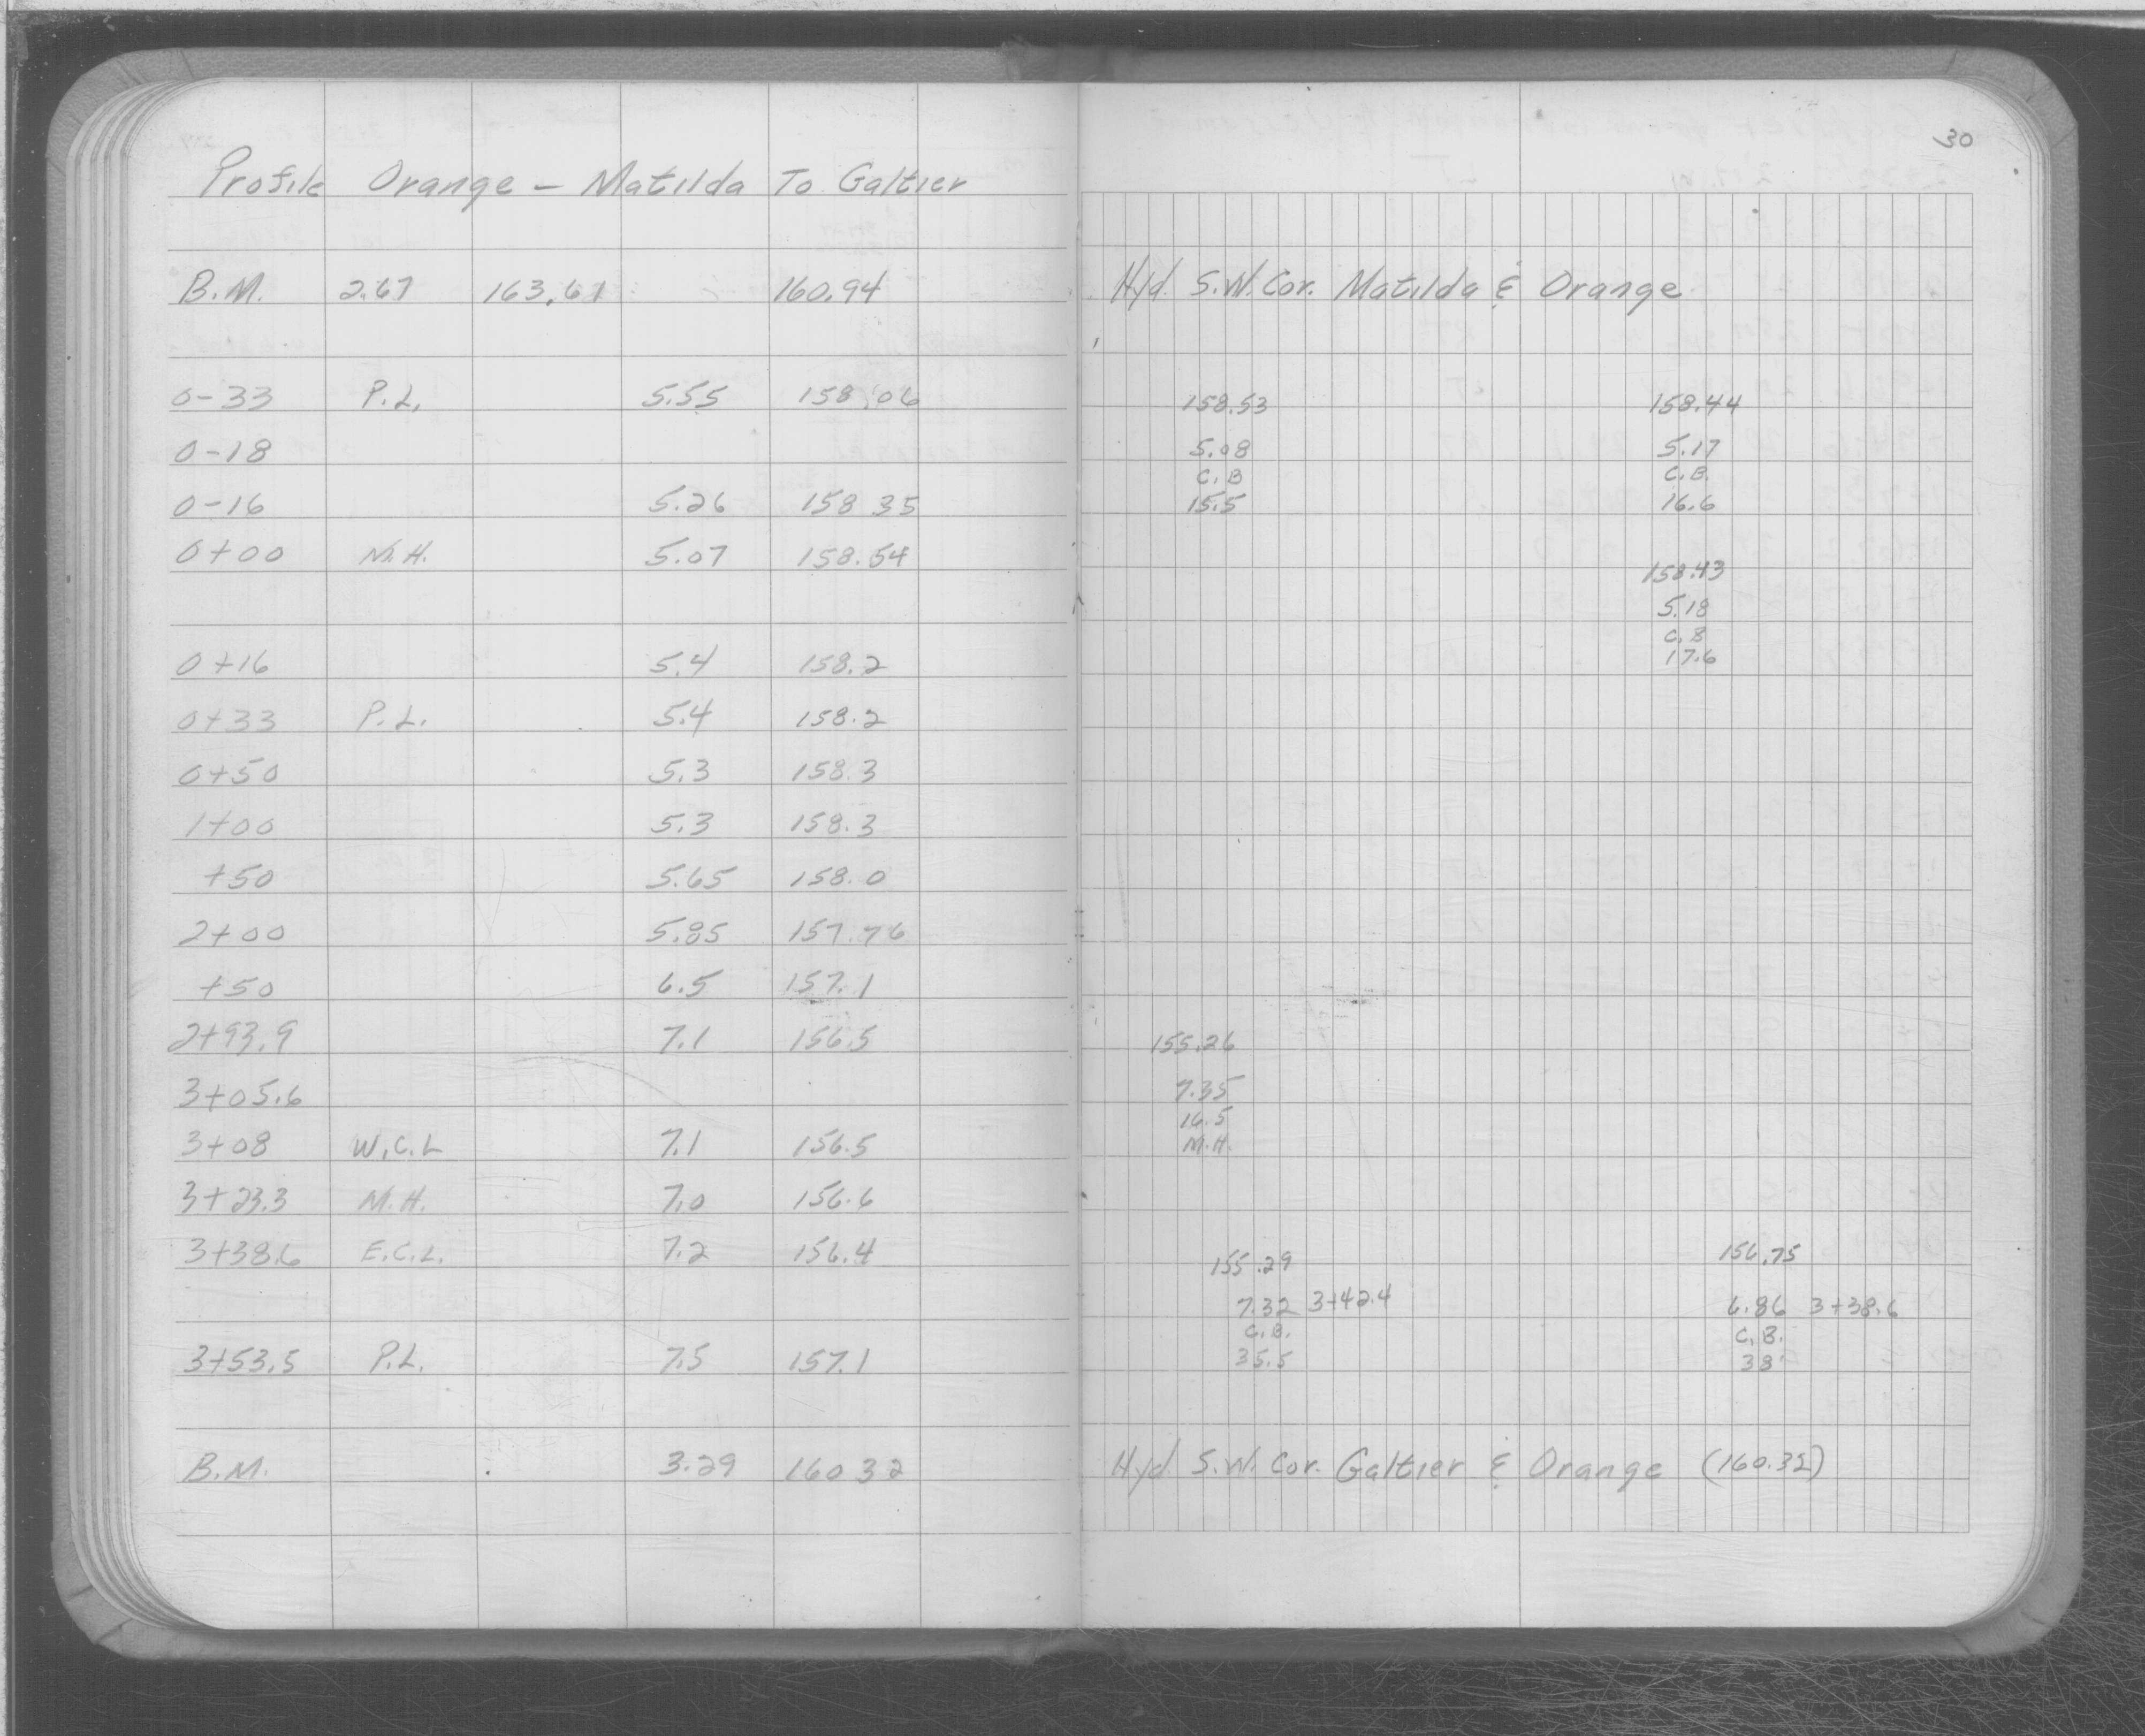 30
Profile Orange - Matilda To Galtier
B.M. 2.67 163.61 160.94 Hyd. S.W. Cor. Matilda & Orange
0-33 P.L. 5.55 158.06 158.53 158.44
0-18 5.08 5.17
C.B C.B.
0-16 5.26 158 35 15.5 16.6
0+00 M.H. 5.07 158.54
158.43
5.18
C.B
0+16 5.4 158.2 17.6
0+33 P.L. 5.4 158.2
0+50 5.3 158.3
1+00 5.3 158.3
+50 5.65 158.0
2+00 5.85 157.76
+50 6.5 157.1
2+93.9 7.1 156.5 155.26
3+05.6 7.35
16.5
3+08 W.C.L 7.1 156.5 M.H.
3+23.3 M.H. 7.0 156.6
3+38.6 E.C.L. 7.2 156.4 155.29 156.75
7.32 3+42.4 6.86 3+38.6
C.B. C.B.
3+53.5 P.L. 7.5 157.1 35.5 38'
B.M. 3.29 160 32 Hyd. S.W. Cor. Galtier & Orange (160.32)